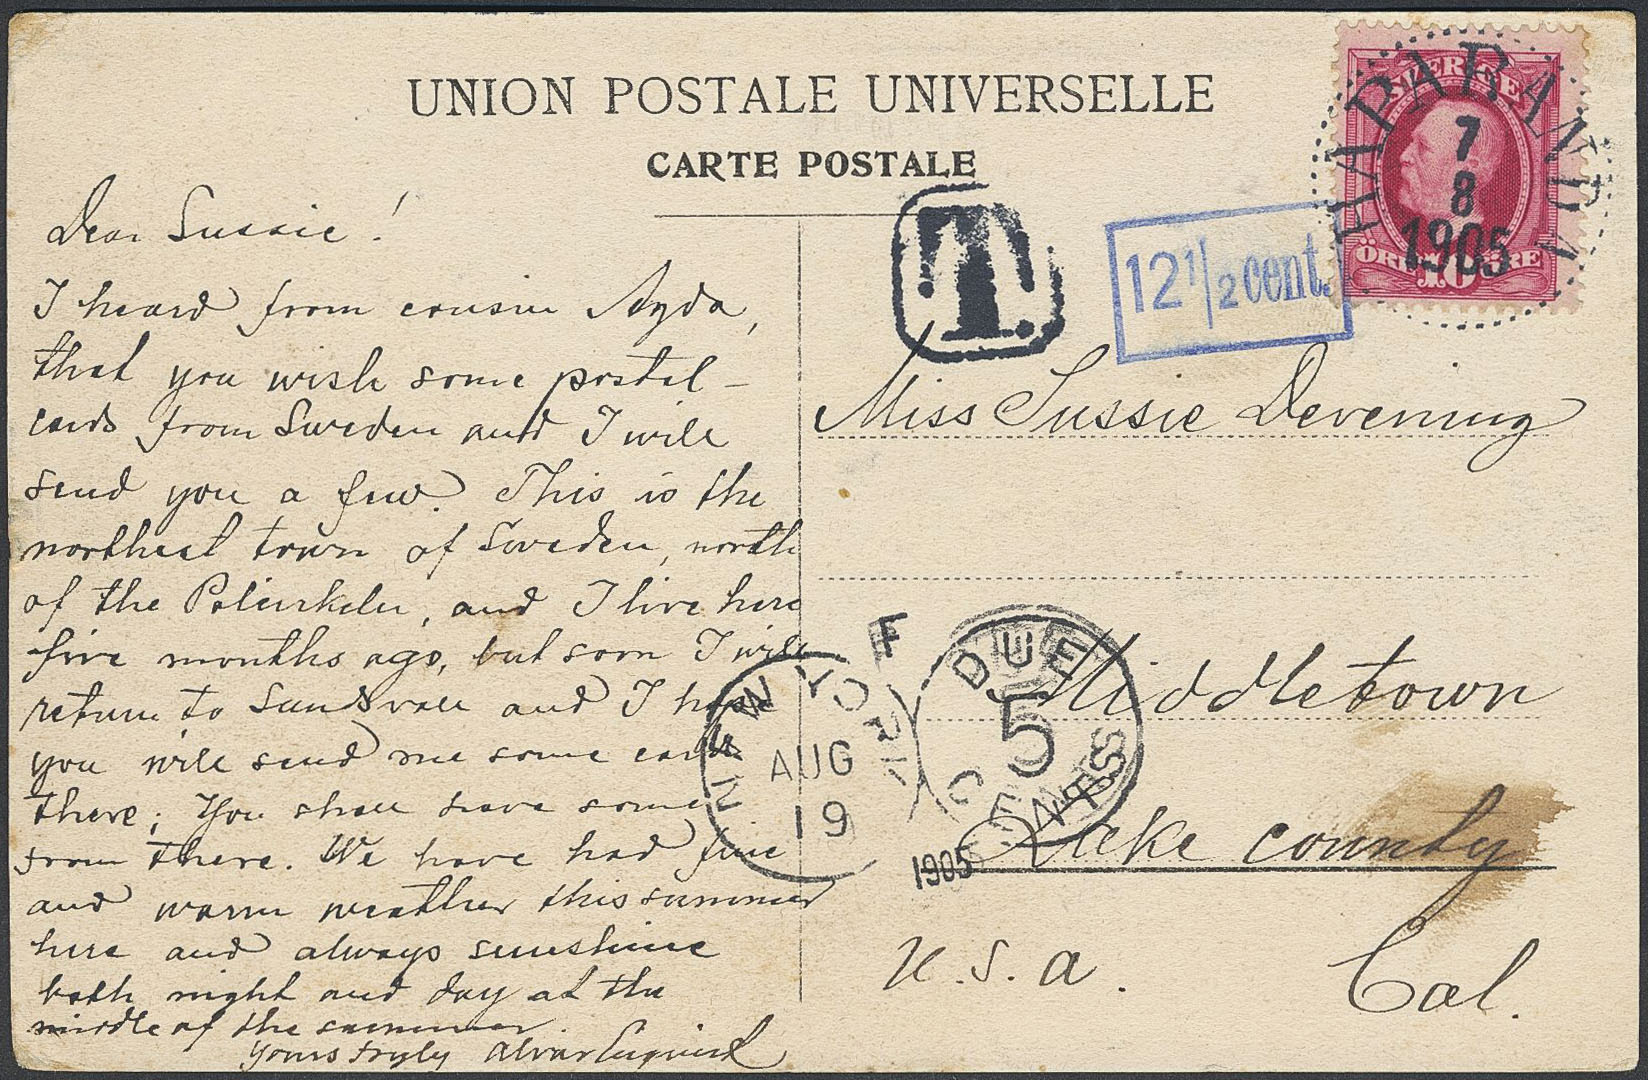 UNION POSTALE UNIVERSELLE
CARTE POSTALE
Dear Sussie!
I heard from cousin Ayda,
that you wish some postal-
cards from Sweden and I will
send you a few. This is the
northest town of Sweden, north
of the Polcirkeln, and I live here
five months ago, but soon I will
return to Sundsvall and I hope
you will send me some cards
there; You shall have some
from there. We have had fine
and warm weather this summer
here and always sunshine
both night and day at the
middle of the summer.
Yours truly Alvar Enquist
T.
12 1/2 cent.
SVERIGE
ÖRE 10 ÖRE
HAPARANDA
7
8
1905
Miss Sussie Devening
Middletown
Lake county
U.S.a. Cal.
NEW YORK
AUG
19
1905
DUE
5
CENTS